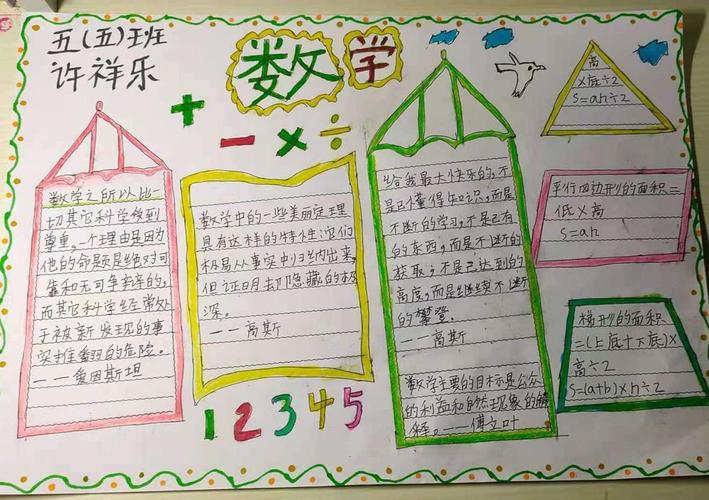 五(五)班
许祥乐
数学
+ - × ÷
数学之所以比一
切其它科学疫到
尊重，一个理由是因为
他的命题是绝对可
靠和无可争辛的，
而其它科学经常处
于被新发现的事
实推翻的危险。
——爱因斯坦
数学中的一些美丽定理
具有这样的特性：它们
极易从事实中归纳出来，
但证明却隐藏的极
深。
——高斯
1 2 3 4 5
给我最大快乐的，不
是已懂得知识，而是
不断的学习，不是已有
的东西，而是不断的
获取，不是已达到的
高度，而是继续不断
的攀登。
——高斯
数学主要的目标是公众
的利益和自然现象的解
释。——傅立叶
高
×底÷2
S=ah÷2
平行四边形的面积=
低×高
S=ah
梯形的面积
=(上底十下底)×
高÷2
S=(a+b)×h÷2